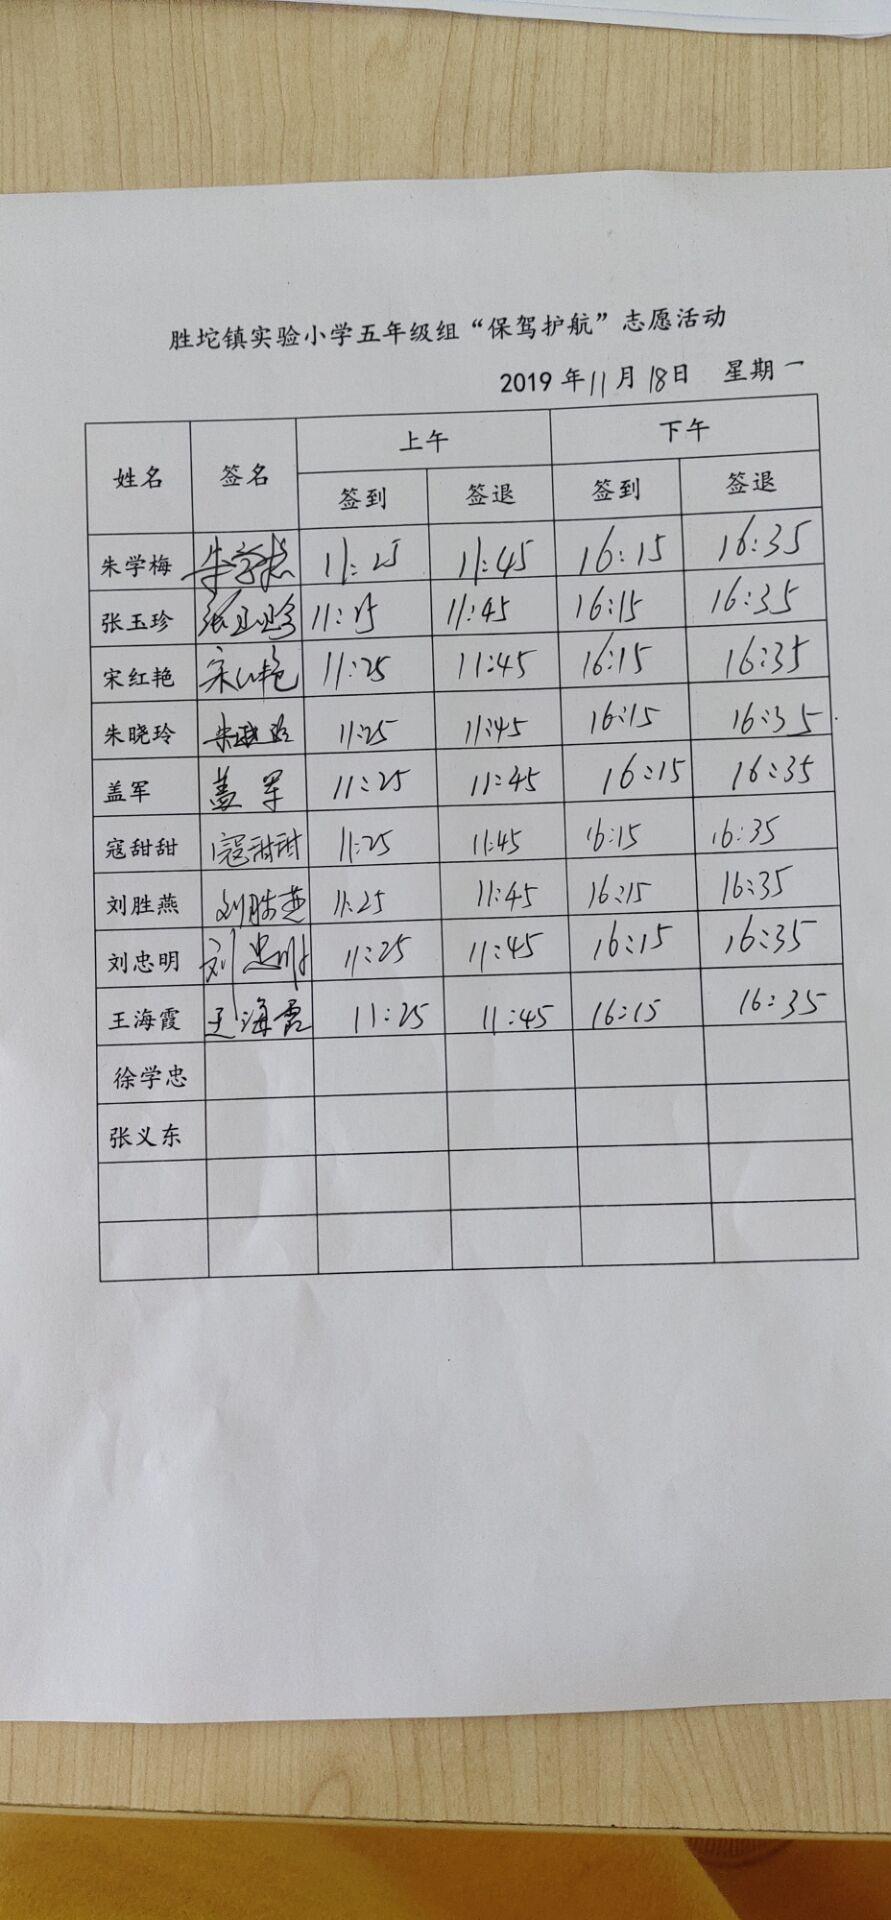 胜坨镇实验小学五年级组“保驾护航”志愿活动
2019 年 11 月 18 日 星期一
姓名 签名 上午 下午
签到 签退 签到 签退
朱学梅 朱学梅 11:25 11:45 16:15 16:35
张玉珍 张玉珍 11:25 11:45 16:15 16:35
宋红艳 宋红艳 11:25 11:45 16:15 16:35
朱晓玲 朱晓玲 11:25 11:45 16:15 16:35
盖军 盖军 11:25 11:45 16:15 16:35
寇甜甜 寇甜甜 11:25 11:45 16:15 16:35
刘胜燕 刘胜燕 11:25 11:45 16:15 16:35
刘忠明 刘忠明 11:25 11:45 16:15 16:35
王海霞 王海霞 11:25 11:45 16:15 16:35
徐学忠
张义东